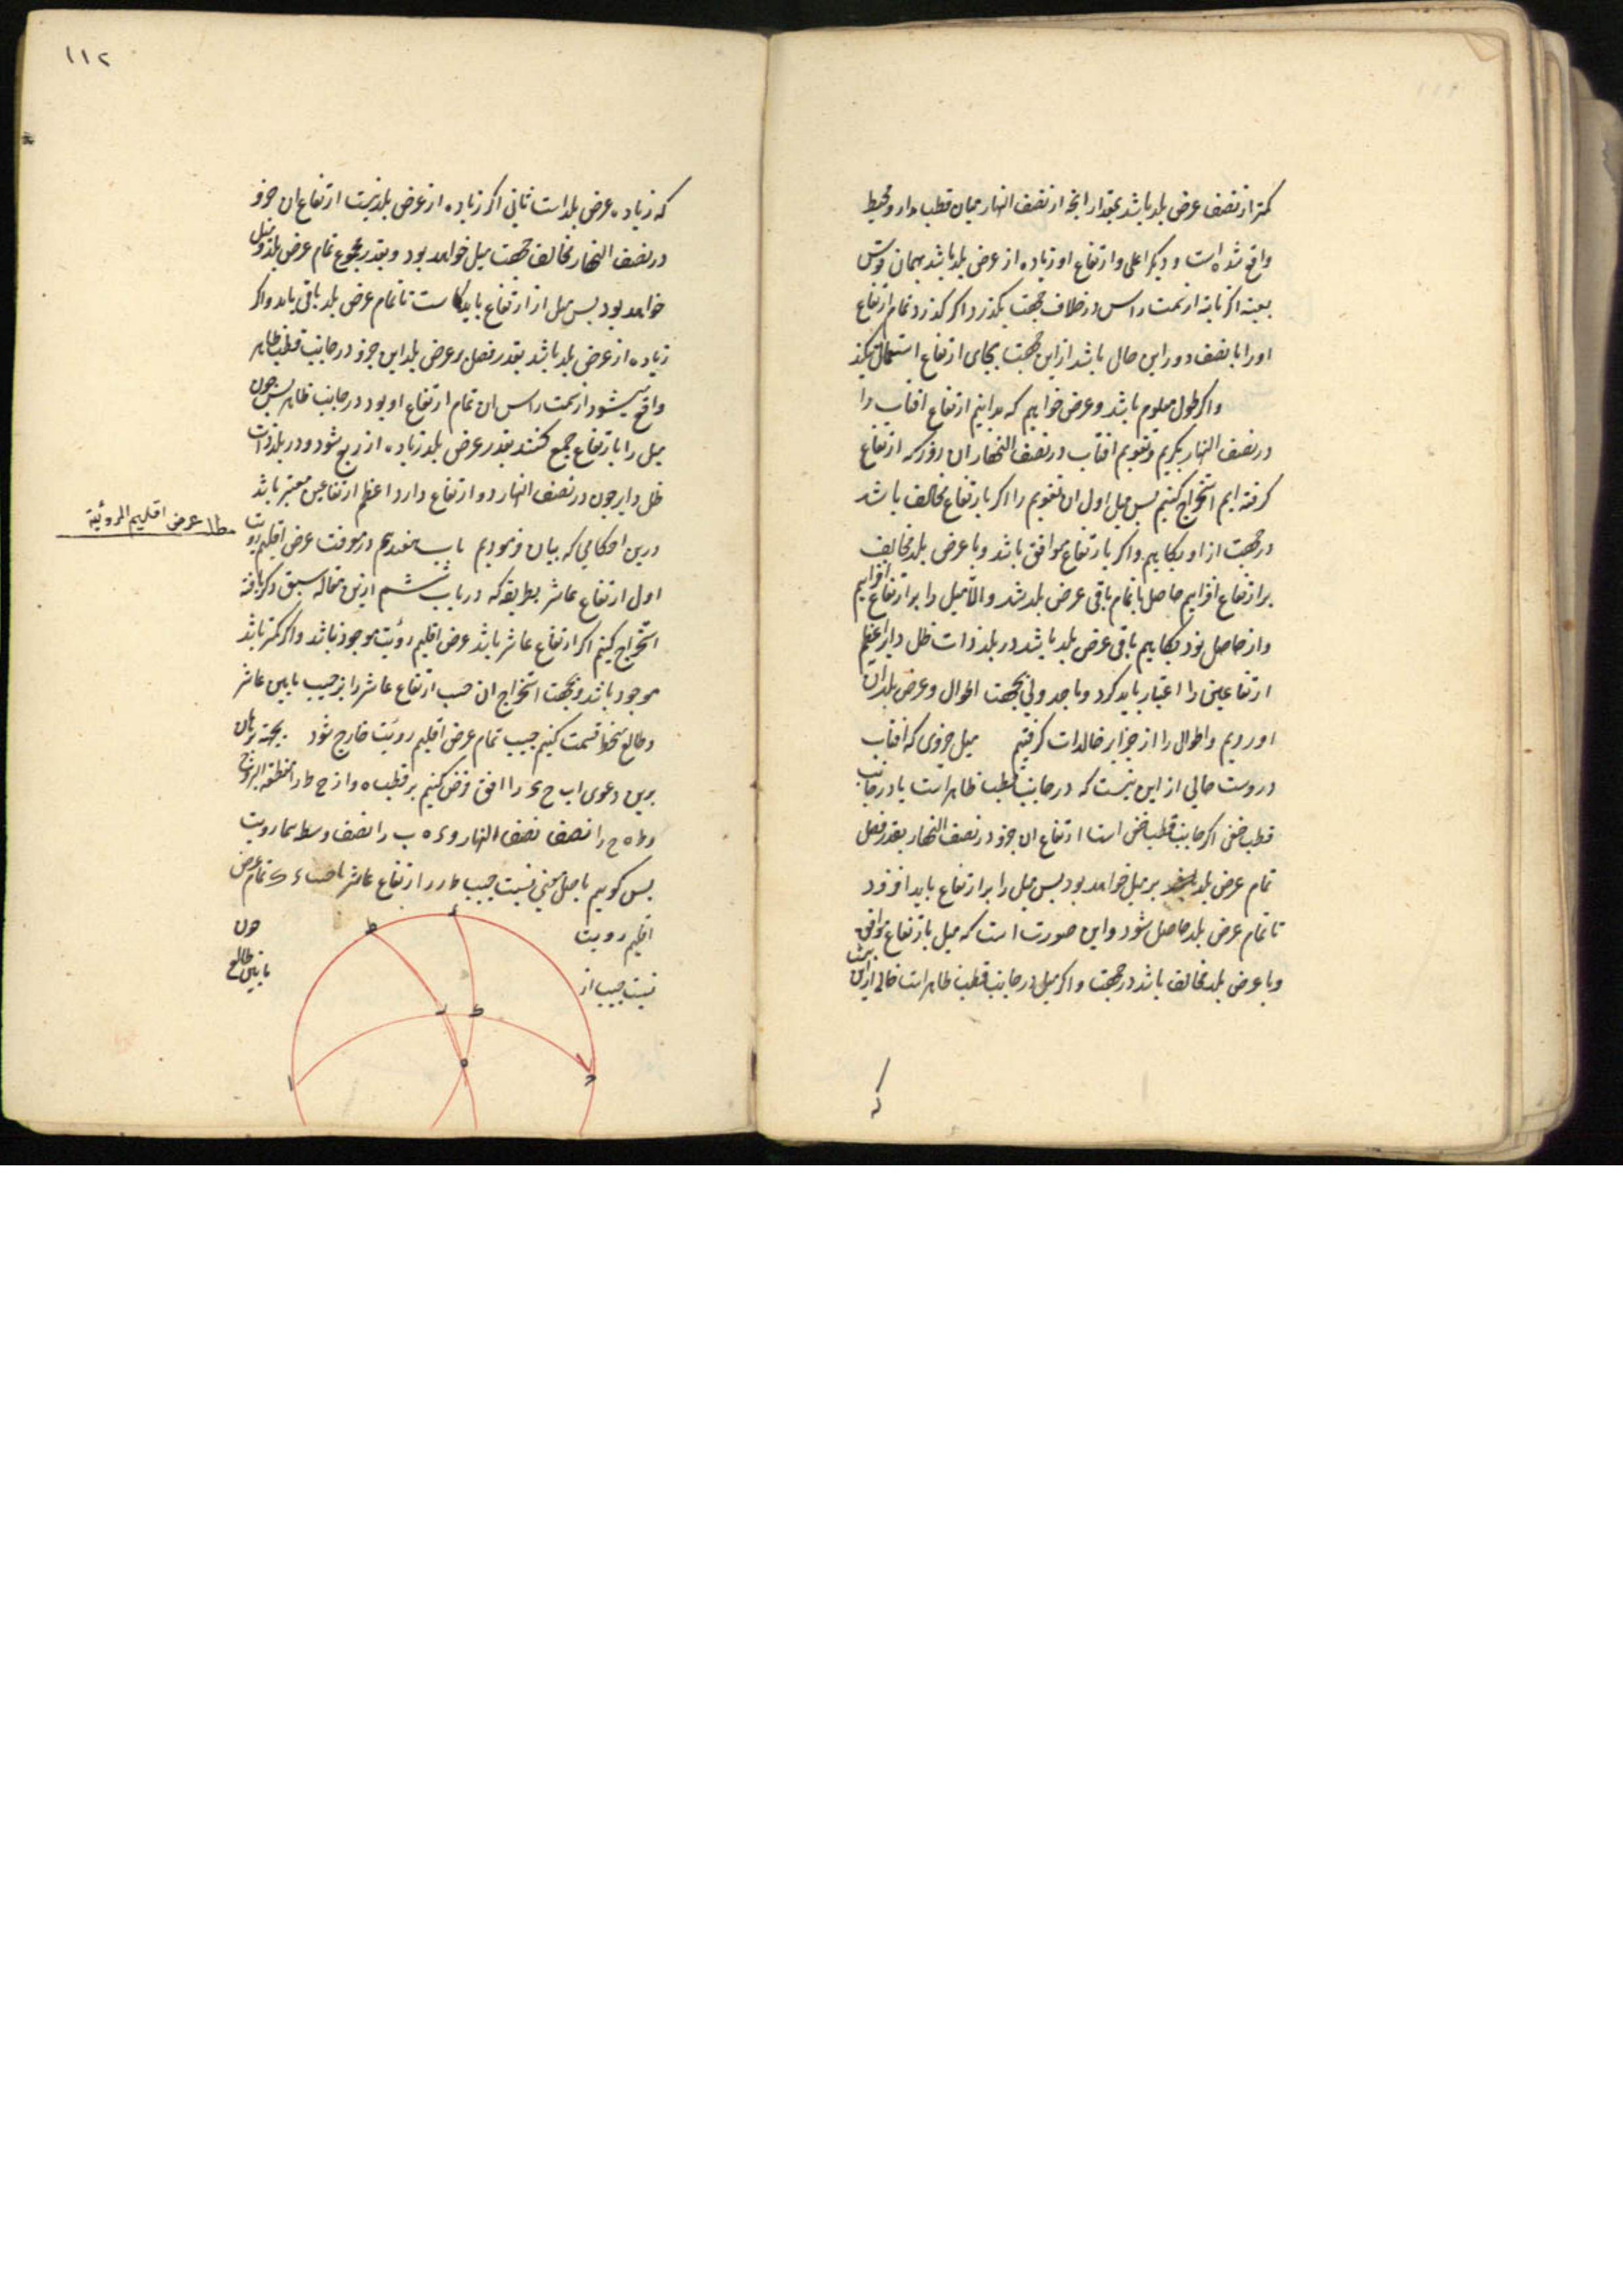 کمتر از نصف عرض بلد باشد بمقدار انچه از نصف النهار میان قطب دار و محیط
واقع شده است و دیگر اعلی و ارتفاع او زیاده از عرض بلد باشد بهمان قوس
بعینه اگر نه از سمت راس در خلاف جهت بگذرد و اگر گذرد تمام ارتفاع
او را با نصف دور این حال باشد از این جهت بجای ارتفاع استعمال کنند
و اگر طول معلوم باشد و عرض خواهیم که بدانیم ارتفاع افتاب را
در نصف النهار بگیریم و تقویم افتاب در نصف النهار ان روز که ارتفاع
گرفته ایم استخراج کنیم پس میل اول ان تقویم را اگر با ارتفاع مخالف باشد
در جهت از او بکاهیم و اگر با ارتفاع موافق باشد و با عرض بلد مخالف
بر ارتفاع افزاییم حاصل یا تمام باقی عرض بلد شد و الا میل را بر ارتفاع افزاییم
و از حاصل نود بکاهیم باقی عرض بلد باشد در بلد ذات ظل دایر اعظم
ارتفاعین را اعتبار باید کرد و ما جدولی بجهت اطوال و عرض بلدان
اوردیم و اطوال را از جزایر خالدات گرفتیم میل جزوی که افتاب
دروست خالی از این نیست که در جانب قطب ظاهر است یا در جانب
قطب خفی اگر جانب قطب خفی است ارتفاع ان جزو در نصف النهار بقدر فضل
تمام عرض بلد بر میل خواهد بود پس میل را بر ارتفاع باید افزود
تا تمام عرض بلد حاصل شود و این صورت است که میل با ارتفاع موافق
و با عرض بلد مخالف باشد در جهت و اگر میل در جانب قطب ظاهر است خالی ازین نیست
که
۱۱۲
که زیاده عرض بلد است ثانی اگر زیاده از عرض بلد نیست ارتفاع ان جزو
در نصف النهار مخالف جهت میل خواهد بود و بقدر مجموع تمام عرض بلد و میل
خواهد بود پس میل از ارتفاع باید کاست تا تمام عرض بلد باقی یابد و اگر
زیاده از عرض بلد باشد بقدر فضل بر عرض بلد این جزو در جانب قطب ظاهر
واقع میشود از سمت راس ان تمام ارتفاع او بود در جانب ظاهر پس چون
میل را با ارتفاع جمع کنند بقدر عرض بلد زیاده از ربع شود و در بلد ذات
ظل دایر چون در نصف النهار دو ارتفاع دارد اعظم ارتفاعین معتبر باشد
درین احکامی که بیان نمودیم باب هفدهم در معرفت عرض اقلیم رویت
مطلب عرض اقلیم الرؤیة
اول ارتفاع عاشر بطریقه که در باب ششم ازین مقاله سبق ذکر یافته
استخراج کنیم اگر ارتفاع عاشر باشد عرض اقلیم رؤیت موجود نباشد و اگر کمتر باشد
موجود باشد و بجهت استخراج ان جیب ارتفاع عاشر را بر جیب مابین عاشر
و طالع منحط قسمت کنیم جیب تمام عرض اقلیم رویت خارج شود بجهة برهان
برین دعوی اب ح ء را افق فرض کنیم بر قطب ه و ا ز ح ط را منطقة البروج
و ط ه ح را نصف نصف النهار و ء ه ب را نصف وسط سماء رویت
پس گوییم باصل مغنی نسبت جیب ط ر ارتفاع عاشر با جیب ء ک تمام عرض
اقلیم رویت چون
نسبت جیب از مابین طالع
ء ط ر ک ه ا ح